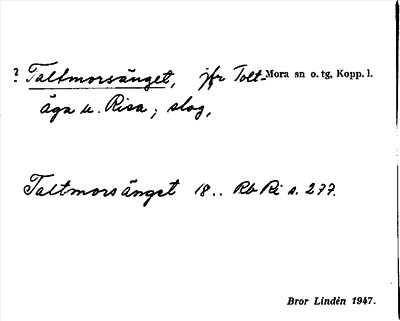 ? Taltmorsänget, jfr Tolt- Mora sn o. tg, Kopp. l.
äga u. Risa; slog,
Taltmorsänget 18.. Rb Ri s. 277.
Bror Lindén 1947.